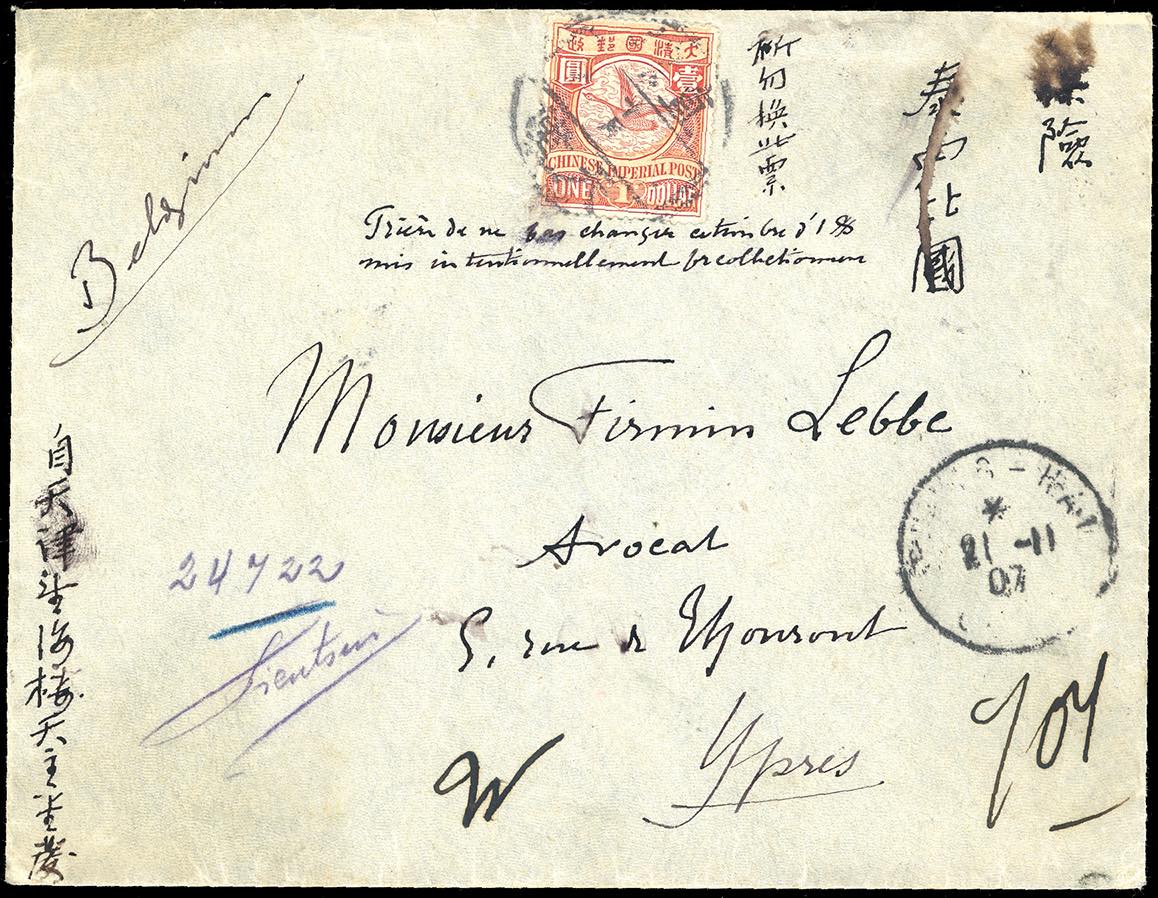 大清國郵政
壹
圓
CHINESE IMPERIAL POST
ONE 1 DOLLAR
祈勿換此票
泰西比國
險
Prière de ne pas changer ce timbre d'1 $
mis intentionnellement pr collectionneur
Belgium
Monsieur Firmin Lebbe
Avocat
5, rue de Thourout
Ypres
自天津望海楼天主堂發
24722
Tientsin
21-11
07
W